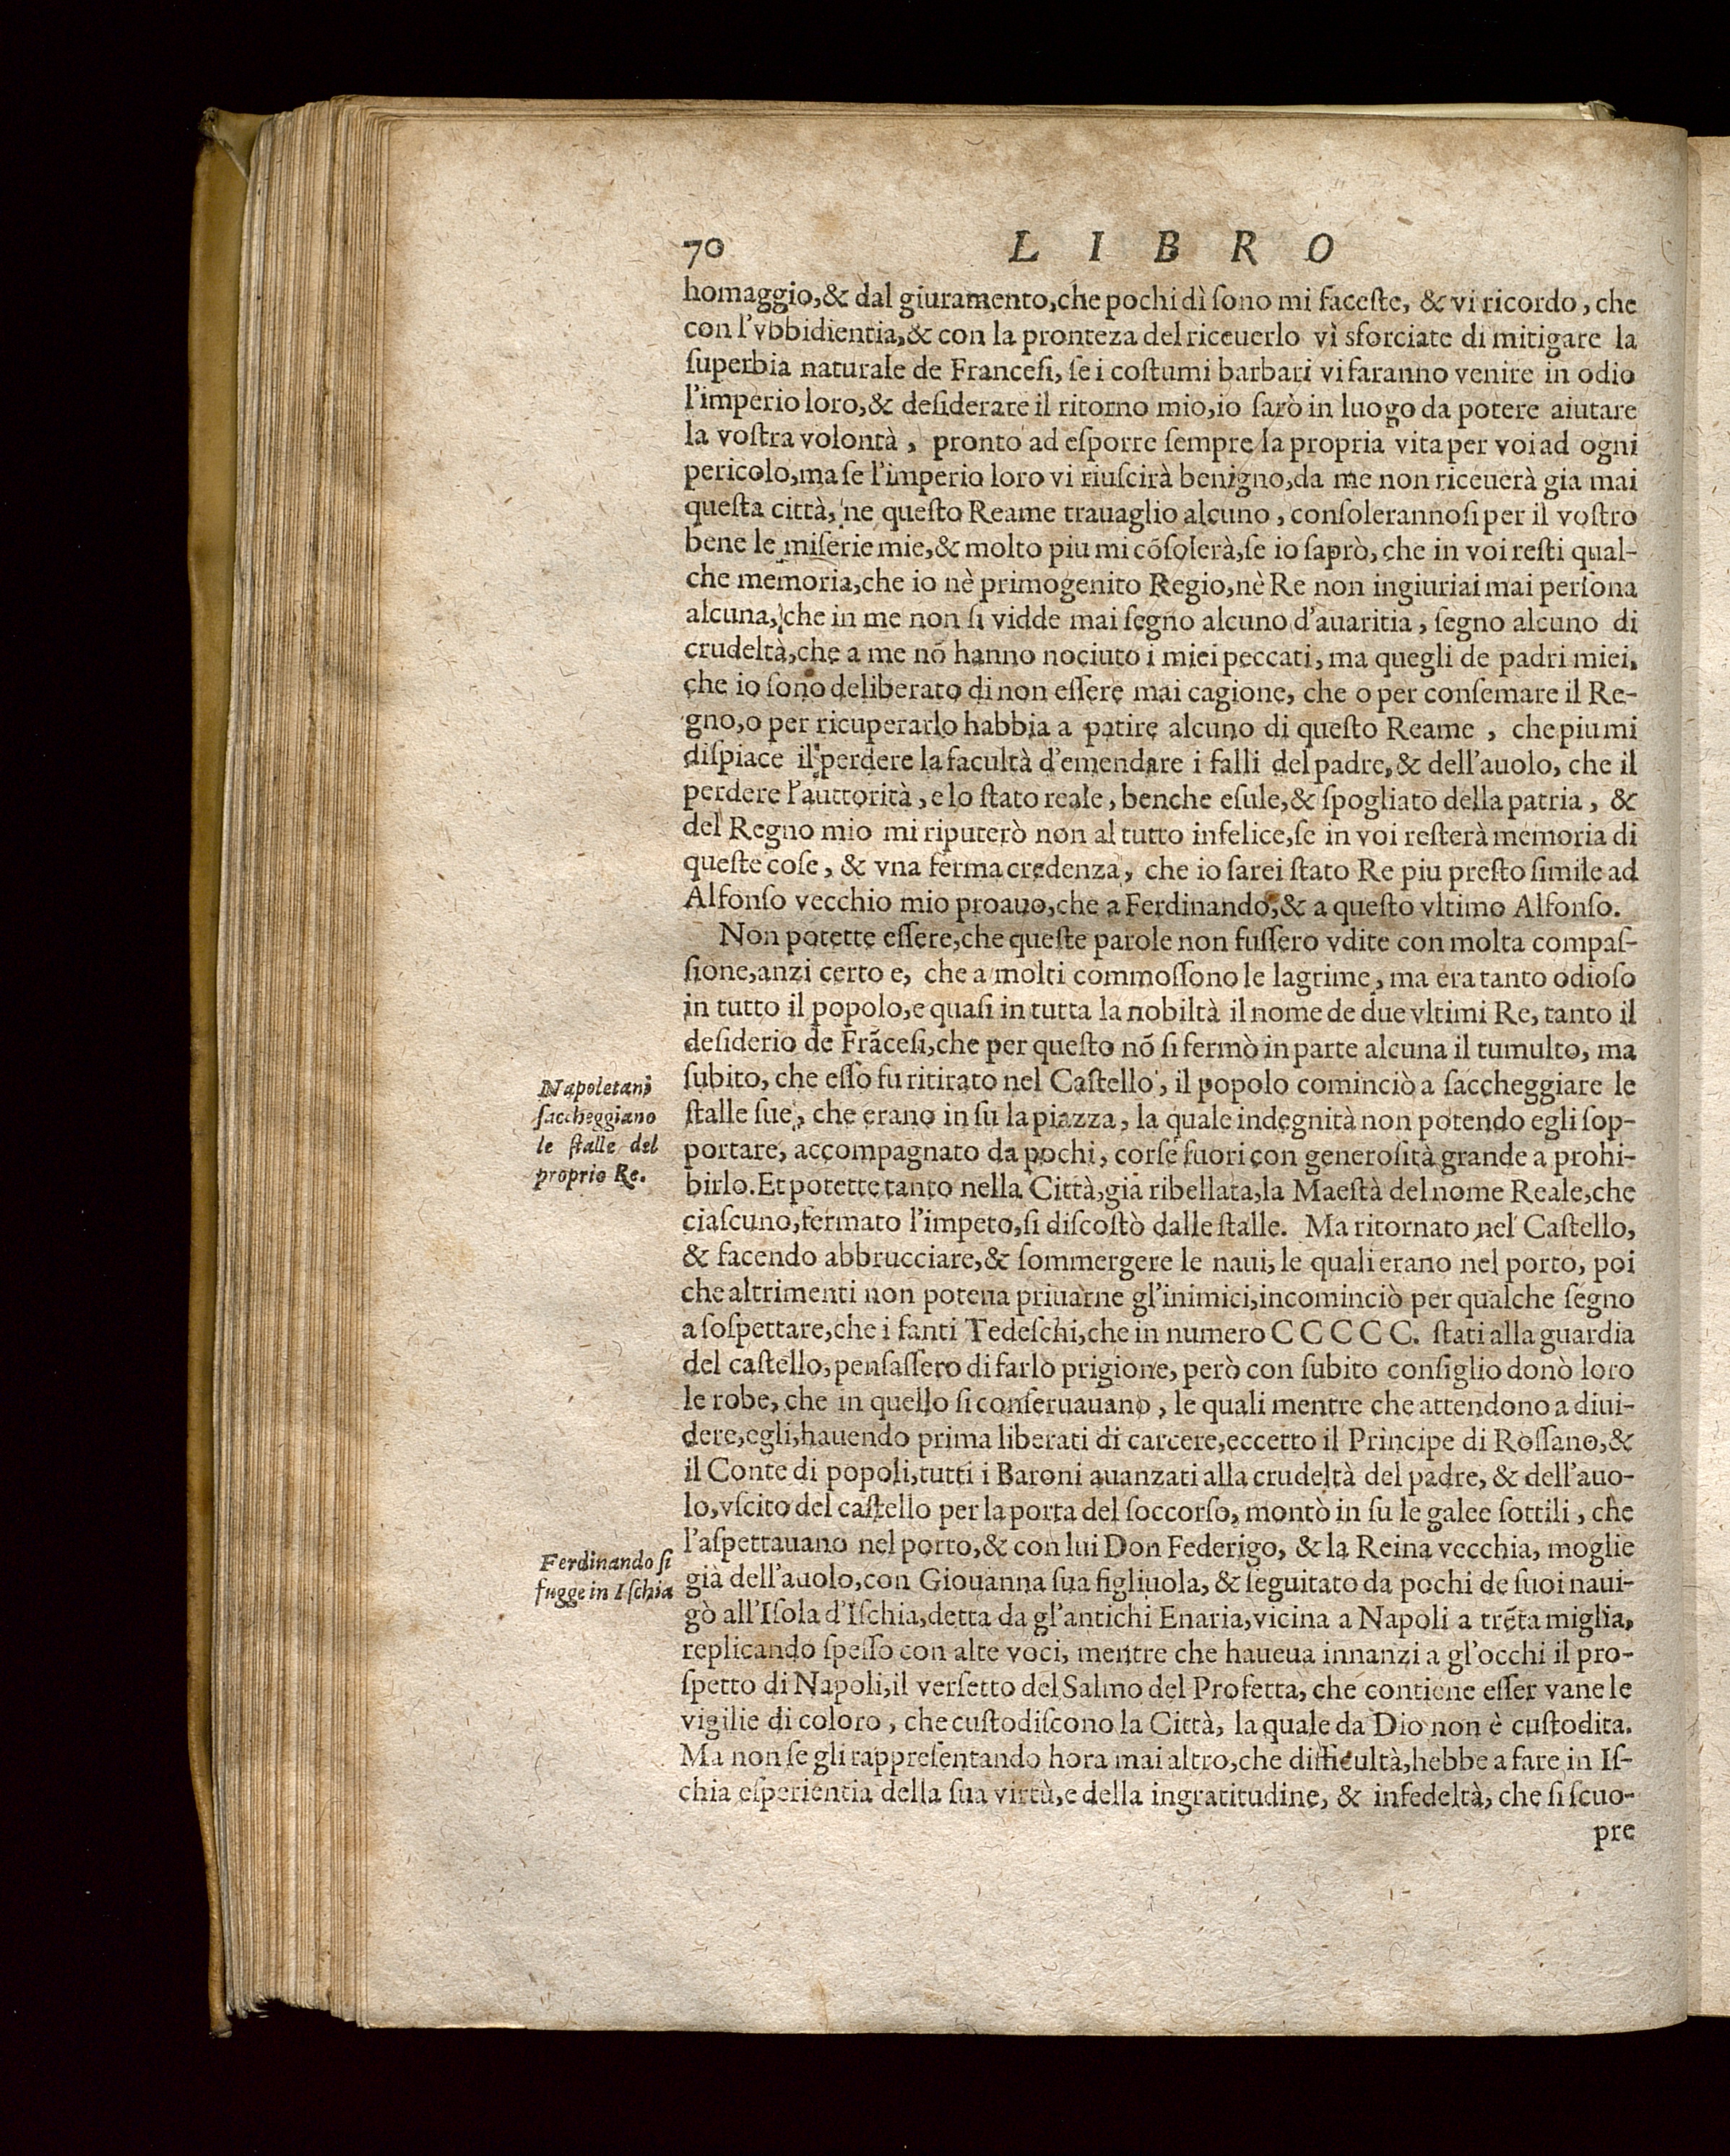 70 LIBRO
homaggio,& dal giuramento,che pochi dì ſono mi faceſte, & vi ricordo, che
con l'vbbidientia,& con la pronteza del riceuerlo vi sforciate di mitigare la
ſuperbia naturale de Franceſi, ſe i coſtumi barbari vi faranno venire in odio
l'imperio loro,& deſiderare il ritorno mio,io ſarò in luogo da potere aiutare
la voſtra volontà, pronto ad eſporre ſempre la propria vita per voi ad ogni
pericolo,ma ſe l'imperio loro vi riuſcirà benigno,da me non riceuerà gia mai
queſta città, ne queſto Reame trauaglio alcuno, conſolerannoſi per il voſtro
bene le miſerie mie,& molto piu mi cõſolerà,ſe io ſaprò, che in voi reſti qual-
che memoria,che io nè primogenito Regio,nè Re non ingiuriai mai perſona
alcuna, che in me non ſi vidde mai ſegno alcuno d'auaritia, ſegno alcuno di
crudeltà,che a me nõ hanno nociuto i miei peccati, ma quegli de padri miei,
che io ſono deliberato di non eſſere mai cagione, che o per conſemare il Re-
gno,o per ricuperarlo habbia a patire alcuno di queſto Reame, che piu mi
diſpiace il perdere la facultà d'emendare i falli del padre,& dell'auolo, che il
perdere l'auttorità, e lo ſtato reale, benche eſule,& ſpogliato della patria, &
del Regno mio mi riputerò non al tutto infelice,ſe in voi reſterà memoria di
queſte coſe, & vna ferma credenza, che io ſarei ſtato Re piu preſto ſimile ad
Alfonſo vecchio mio proauo,che a Ferdinando,& a queſto vltimo Alfonſo.
Non potette eſſere,che queſte parole non fuſſero vdite con molta compaſ-
ſione,anzi certo e, che a molti commoſſono le lagrime, ma era tanto odioſo
in tutto il popolo,e quaſi in tutta la nobiltà il nome de due vltimi Re, tanto il
deſiderio de Frãceſi,che per queſto nõ ſi fermò in parte alcuna il tumulto, ma
ſubito, che eſſo fu ritirato nel Caſtello, il popolo cominciò a ſaccheggiare le
ſtalle ſue, che erano in su la piazza, la quale indegnità non potendo egli ſop-
portare, accompagnato da pochi, corſe fuori con generoſità grande a prohi-
birlo.Et potette tanto nella Città,già ribellata,la Maeſtà del nome Reale,che
ciaſcuno,fermato l'impeto,ſi diſcoſtò dalle ſtalle. Ma ritornato nel Caſtello,
& facendo abbrucciare,& ſommergere le naui, le quali erano nel porto, poi
che altrimenti non potena priuarne gl'inimici,incominciò per qualche ſegno
a ſoſpettare,che i fanti Tedeſchi,che in numero C C C C C. ſtati alla guardia
del caſtello,penſaſſero di farlo prigione, però con ſubito conſiglio donò loro
le robe, che in quello ſi conſeruauano, le quali mentre che attendono a diui-
dere,egli,hauendo prima liberati di carcere,eccetto il Principe di Roſſano,&
il Conte di popoli,tutti i Baroni auanzati alla crudeltà del padre, & dell'auo-
lo,vſcito del caſtello per la porta del ſoccorſo, montò in su le galee ſottili, che
l'aſpettauano nel porto,& con lui Don Federigo, & la Reina vecchia, moglie
già dell'auolo,con Giouanna ſua figliuola, & ſeguitato da pochi de ſuoi naui-
gò all'Iſola d'Iſchia,detta da gl'antichi Enaria,vicina a Napoli a trẽta miglia,
replicando ſpeſſo con alte voci, mentre che haueua innanzi a gl'occhi il pro-
ſpetto di Napoli,il verſetto del Salmo del Profetta, che contiene eſſer vane le
vigilie di coloro, che cuſtodiſcono la Città, la quale da Dio non è cuſtodita.
Ma non ſe gli rappreſentando hora mai altro,che difficultà,hebbe a fare in Iſ-
chia eſperientia della ſua virtù,e della ingratitudine, & infedeltà, che ſi ſcuo-
pre
Napoletani
ſaccheggiano
le ſtalle del
proprio Re.
Ferdinando ſi
fugge in Iſchia